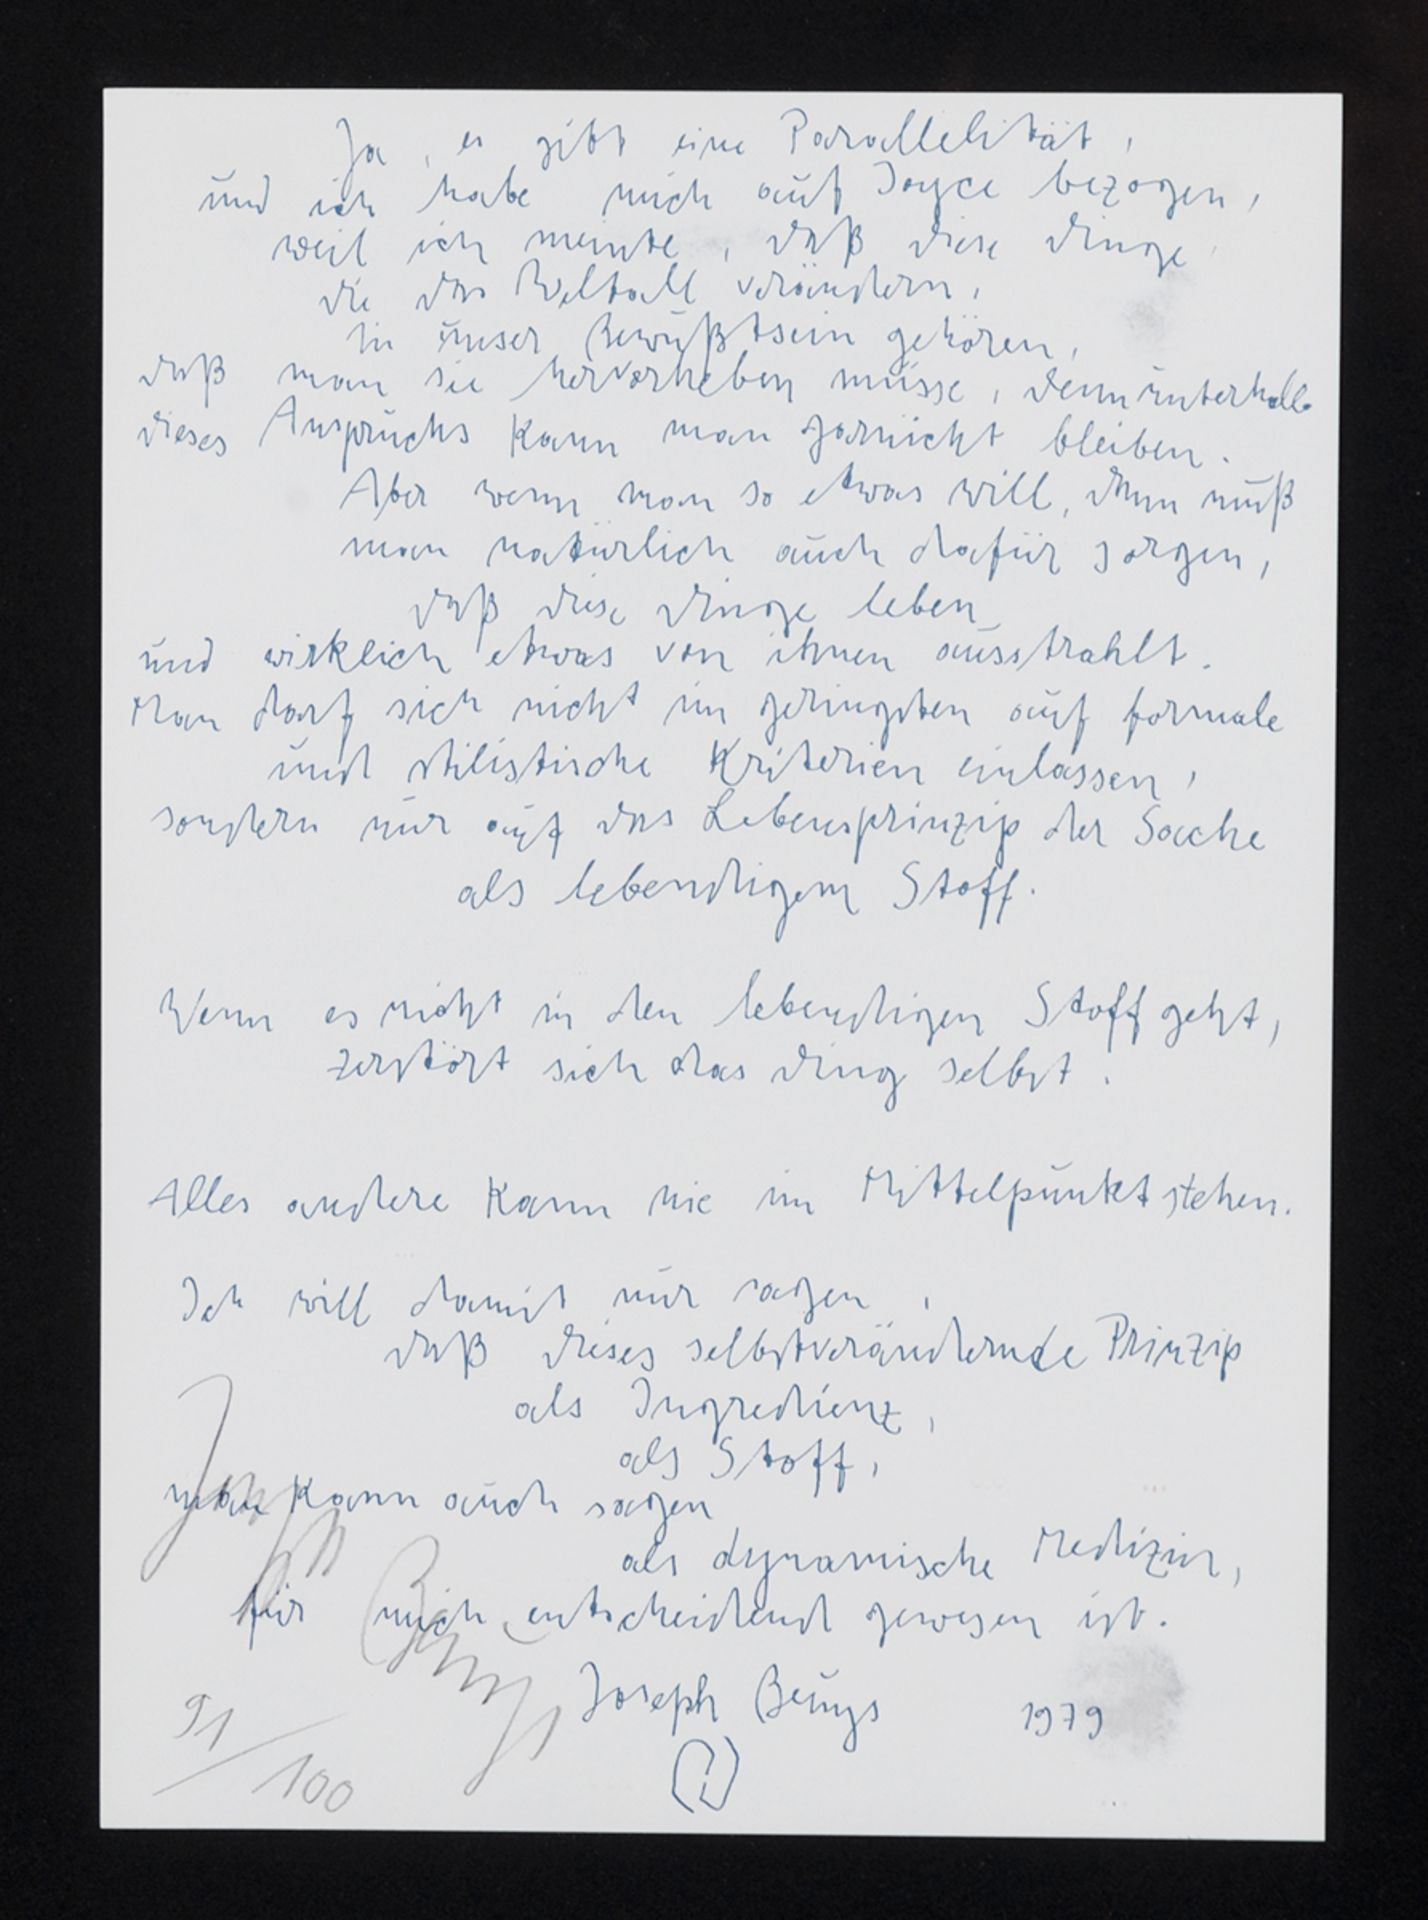 Ja, es gibt eine Parallelität,
und ich habe mich auf Joyce bezogen,
weil ich meinte, daß diese dinge
die das Weltall verändern,
in unser Bewußtsein gehören,
daß man sie hervorheben müsse, denn unterhalb
dieses Anspruchs kann man garnicht bleiben.
Aber wenn man so etwas will, dann muß
man natürlich auch dafür sorgen,
daß diese dinge leben
und wirklich etwas von ihnen ausstrahlt.
Man darf sich nicht im geringsten auf formale
und stilistische Kriterien einlassen,
sondern nur auf das Lebensprinzip der Sache
als lebendigem Stoff.
Wenn es nicht in den lebendigen Stoff geht,
zerstört sich das ding selbst!
Alles andere kann nie im Mittelpunkt stehen.
Ich will damit nur sagen,
daß dieses selbstverändernde Prinzip
als Ingredienz,
als Stoff,
man kann auch sagen
als dynamische Medizin,
für mich entscheidend gewesen ist.
Joseph Beuys 1979
Joseph Beuys
91/100